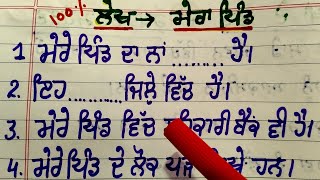 100% ਲੇਖ → ਮੇਰਾ ਪਿੰਡ
1 ਮੇਰੇ ਪਿੰਡ ਦਾ ਨਾਂ ......... ਹੈ।
2. ਇਹ ......... ਜ਼ਿਲ੍ਹੇ ਵਿੱਚ ਹੈ।
3. ਮੇਰੇ ਪਿੰਡ ਵਿੱਚ ਬੈਂਕ ਵੀ ਹੈ।
4. ਮੇਰੇ ਪਿੰਡ ਦੇ ਲੋਕ ਹਨ।